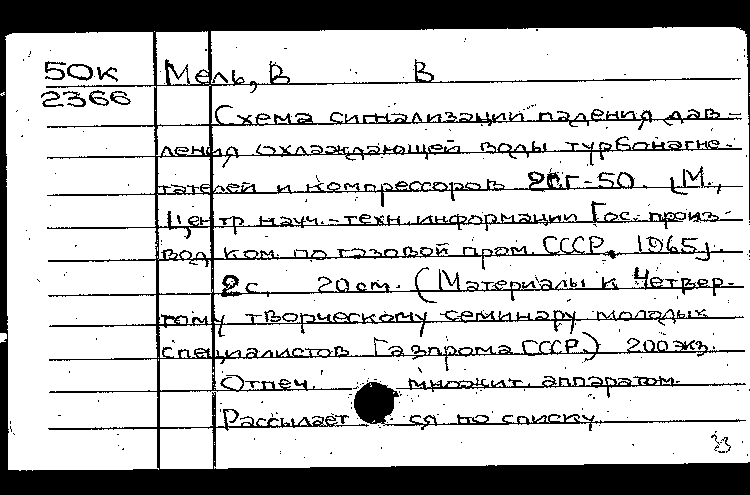 50к Мель, В В
2366
Схема сигнализации падения дав-
ления охлаждающей воды турбонагне-
тателей и компрессоров 2СГ-50. [М.,
Центр. науч.-техн. информации Гос. произ-
вод. ком. по газовой пром. СССР, 1965].
2с, 20 см. (Материалы к Четвер-
тому творческому семинару молодых
специалистов Газпрома СССР.) 200 экз.
Отпеч. множит. аппаратом.
Рассылает ся по списку.
33